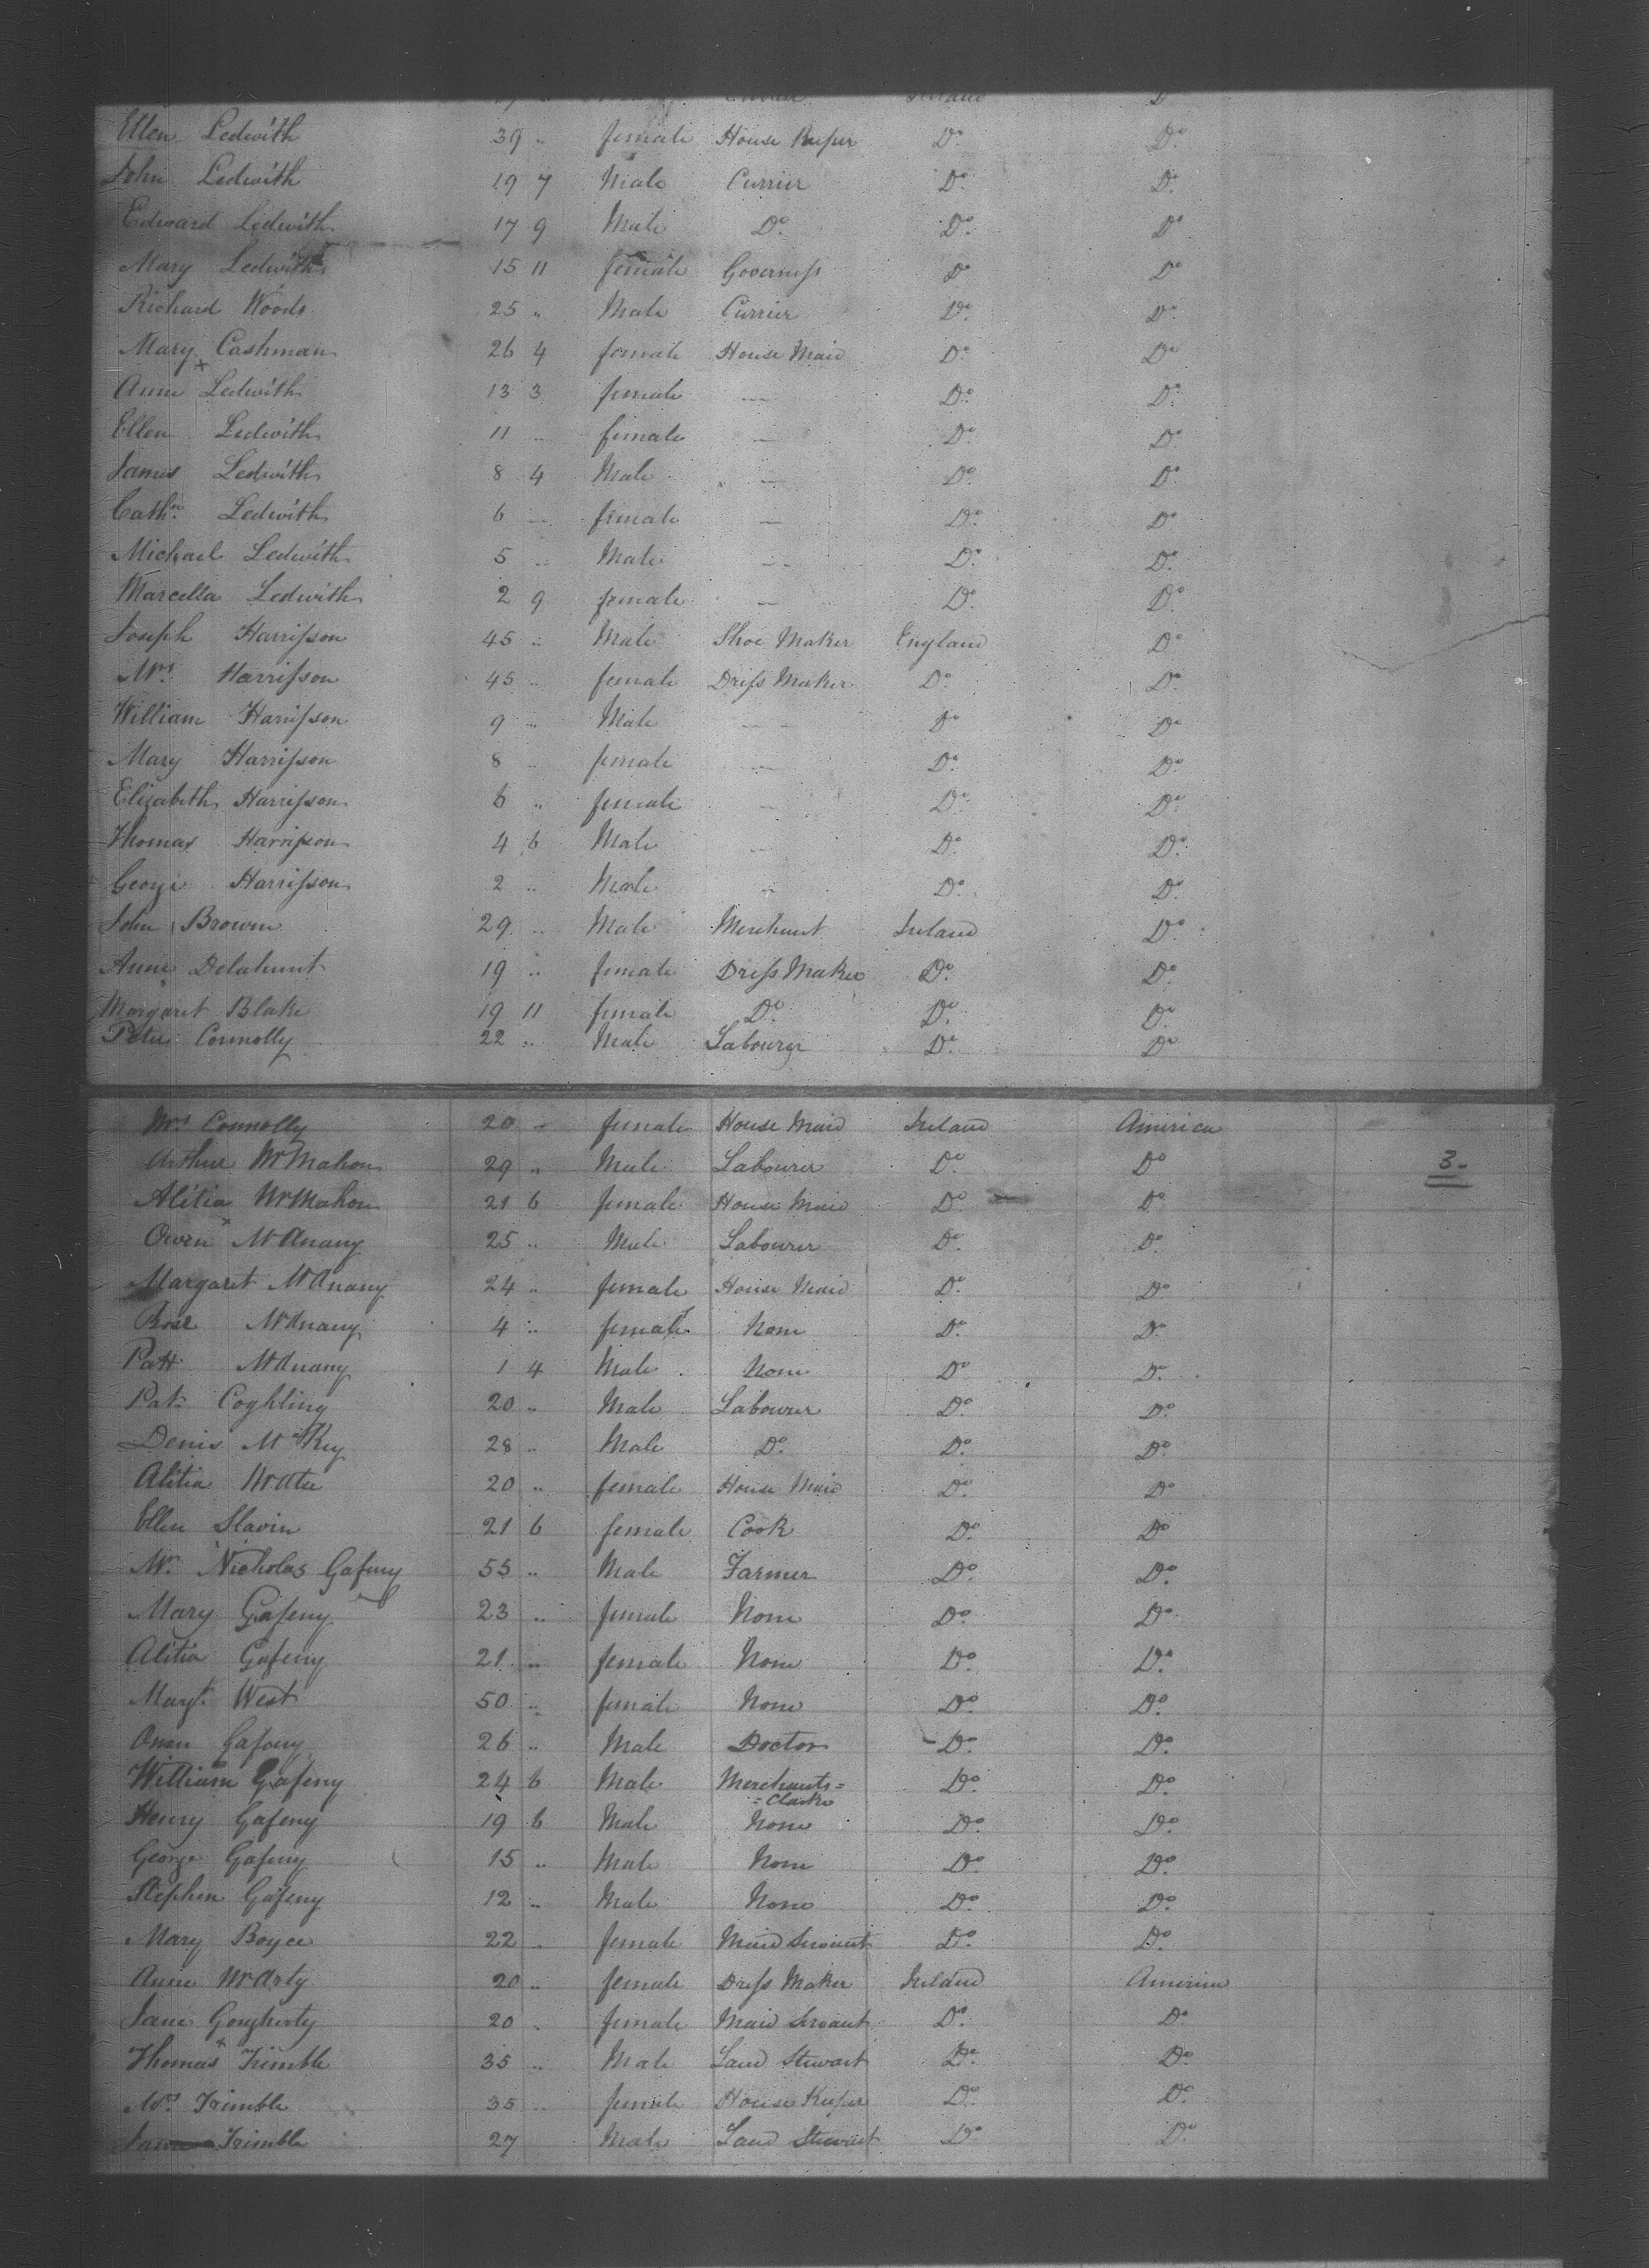 Ireland
Ellen Ledwith 39 " female House Keeper Do. Do.
John Ledwith 19 7 Male Currier Do. Do.
Edward Ledwith 17 9 Male Do. Do. Do
Mary Ledwith 15 11 female Governess Do Do
Richard Woods 25 " Male Currier Do. Do.
Mary Cashman 26 4 female House Maid Do. Do
x
Anne Ledwith 13 3 female — Do. Do.
Ellen Ledwith 11 " female — Do. Do.
James Ledwith 8 4 Male — Do. Do.
Cathn. Ledwith 6 " female — Do. Do.
Michael Ledwith 5 " Male — Do. Do.
Marcella Ledwith 2 9 female — Do. Do.
Joseph Harrisson 45 " Male Shoe Maker England Do.
Mrs. Harrisson 45 " female Dress Maker Do. Do.
William Harrisson 9 " Male — Do Do
Mary Harrisson 8 " female — Do. Do.
Elizabeth Harrisson 6 " female — Do. Do.
Thomas Harrisson 4 6 Male — Do. Do.
George Harrisson 2 " Male — Do. Do.
John Browm 29 " Male Merchant Ireland Do.
Anne Delahunt 19 " female Dress Maker Do. Do.
Margaret Blake 19 11 female Do. Do. Do.
Peter Connolly 22 " Male Labourer Do. Do.
Mrs Connolly 20 " female House Maid Ireland America
Arthur McMahon 29 " Male Labourer Do. Do 3.
Alitia McMahon 21 6 female House Maid Do. Do
x
Owen McAnany 25 " Male Labourer Do. Do.
Margaret McAnany 24 " female House Maid Do. Do.
Rose McAnany 4 " female None Do. Do.
Patt McAnany 1 4 Male None Do Do.
Pat. Coghling 20 " Male Labourer Do. Do.
Denis McKey 28 " Male Do. Do. Do.
Alitia 20 " female House Maid Do. Do
Ellen Slavin 21 6 female Cook Do. Do
Mr. Nicholas Gafeny 55 " Male Farmer Do. Do.
Mary Gafeny 23 " female None Do. Do.
Alitia Gafeny 21 " female None Do. Do.
Margt. West 50 " female None Do. Do.
Owen Gafeny 26 " Male Doctor Do. Do.
William Gafeny 24 6 Male Merchants= Do. Do.
=Clark
Henry Gafeny 19 6 Male None Do. Do.
George Gafeny 15 " Male None Do. Do.
Stephen Gafeny 12 " Male None Do. Do.
Mary Boyce 22 " female Maid Servant Do. Do.
Anne McArty 20 " female Dress Maker Ireland America
Jane Gougherty 20 " female Maid Servant Do. Do.
x
Thomas Trimble 35 " Male Land Stewart Do. Do.
Mrs. Trimble 35 " female House Keeper Do. Do.
Trimble 27 Male Land Stewart Do. Do.